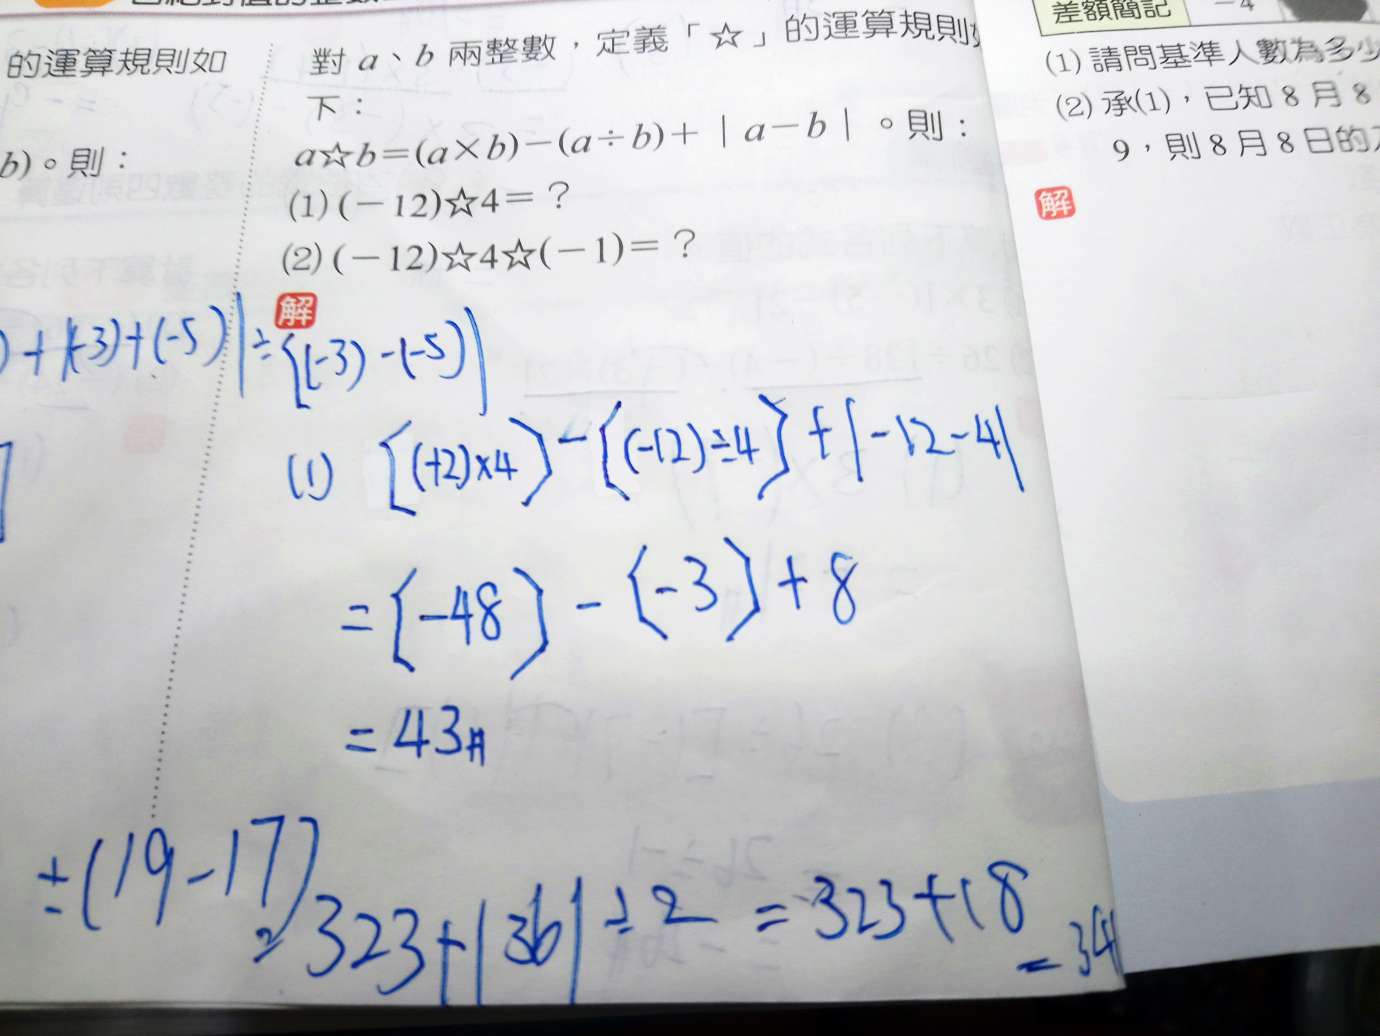 的運算規則如
b)。則：
對 a、b 兩整數，定義「☆」的運算規則
下：
a☆b=(a×b)−(a÷b)+｜a−b｜。則：
(1) (−12)☆4=？
(2) (−12)☆4☆(−1)=？
解
差額簡記 −4
(1) 請問基準人數為多少
(2) 承(1)，已知 8 月 8
9，則 8 月 8 日的
解
)+|(-3)+(-5)|÷{(-3)-(-5)|
(1) [(+2)×4]-[(-12)÷4]+|-12-4|
=[-48]-[-3]+8
=43#
÷(19-17)
=323+|36|÷2=323+18
=341